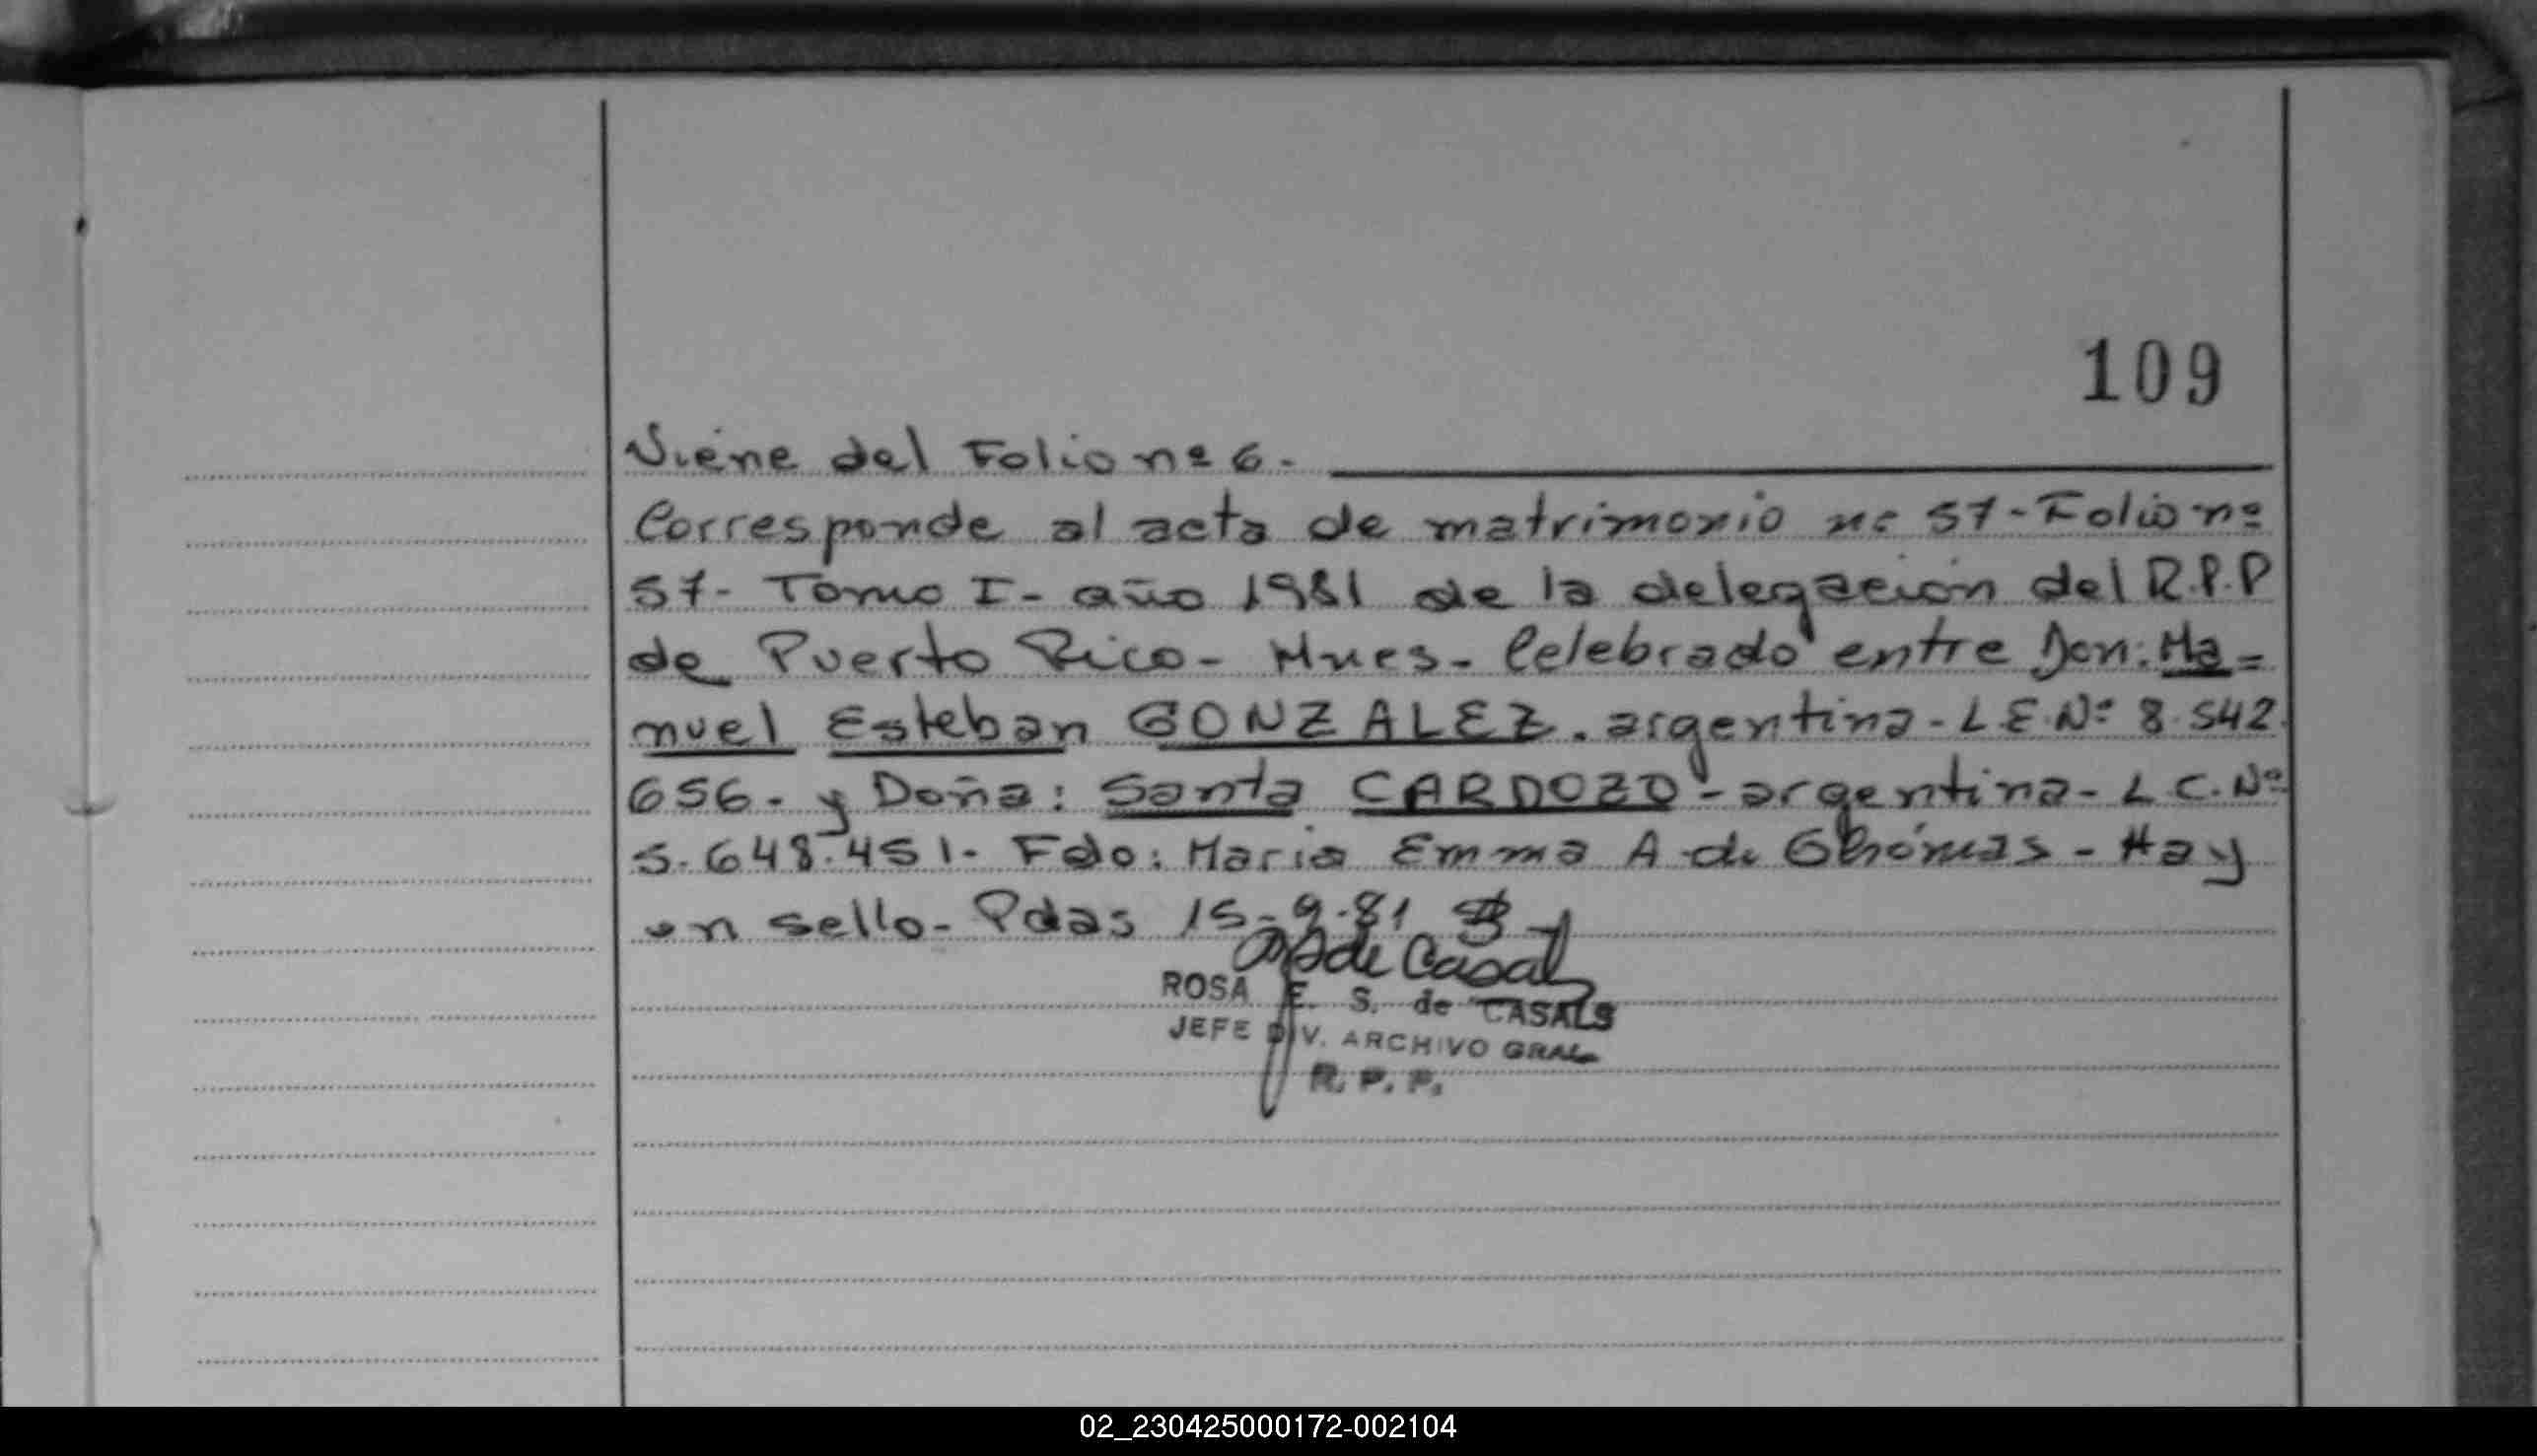 109
Viene del Folio nº 6.
Corresponde al acta de matrimonio nº 57 - Folio nº
57 - Tomo I - año 1981 de la delegación del R.P.P
de Puerto Rico - Mnes - Celebrado entre Don: Ma=
nuel Esteban GONZALEZ. argentina - L E. Nº 8.542.
656. y Doña: Santa CARDOZO - argentina - L C. Nº
5.648.451. Fdo: Maria Emma A de - Hay
un sello - Pdas 15-9-81
de Casals
ROSA E. S. de CASALS
JEFE DIV. ARCHIVO GRAL.
R. P. P.
02_230425000172-002104